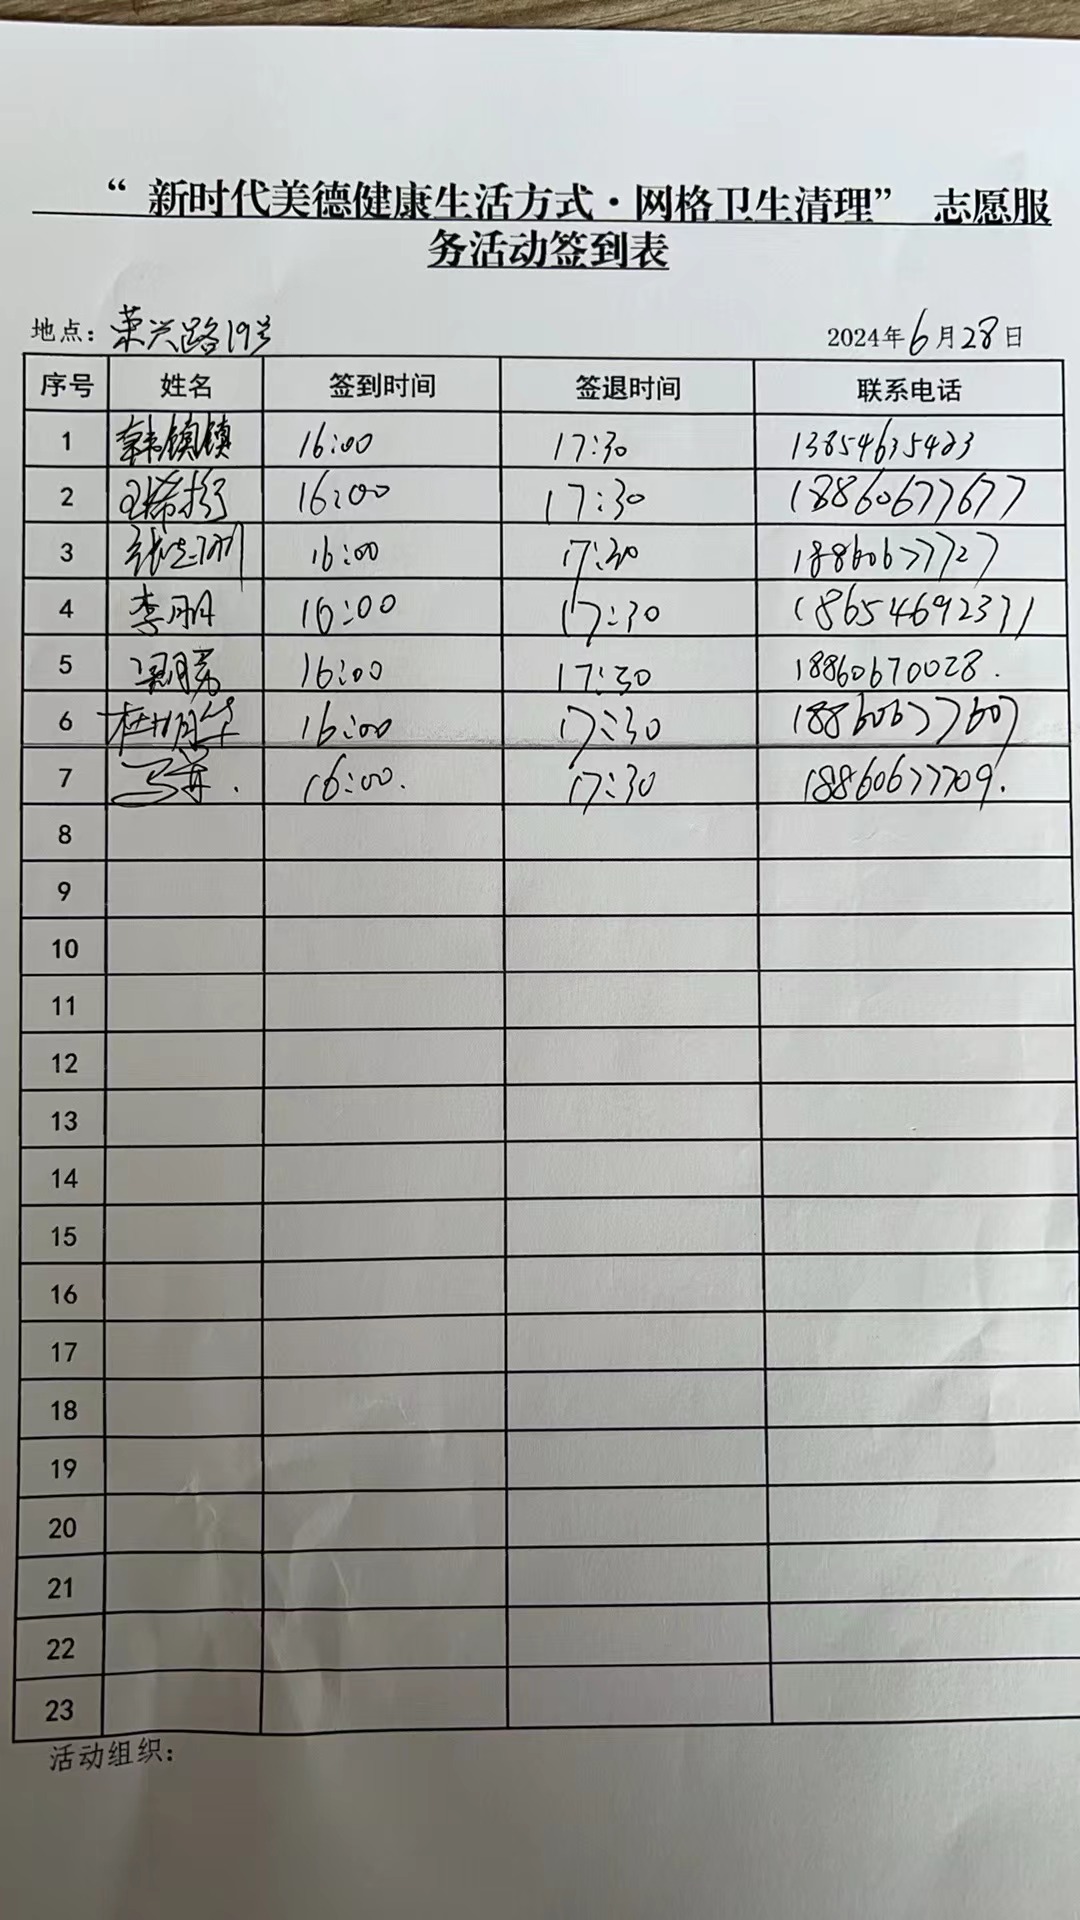 “ 新时代美德健康生活方式·网格卫生清理” 志愿服
务活动签到表
地点：荣兴路19号 2024年6月28日
序号 姓名 签到时间 签退时间 联系电话
1 韩镇镇 16:00 17:30 13854635423
2 16:00 17:30 18860677677
3 16:00 17:30 18860677727
4 李朋 16:00 17:30 18654692331
5 16:00 17:30 18860670028.
6 杜明华 16:00 17:30 18860677607
7 16:00. 17:30 18860677709.
8
9
10
11
12
13
14
15
16
17
18
19
20
21
22
23
活动组织：